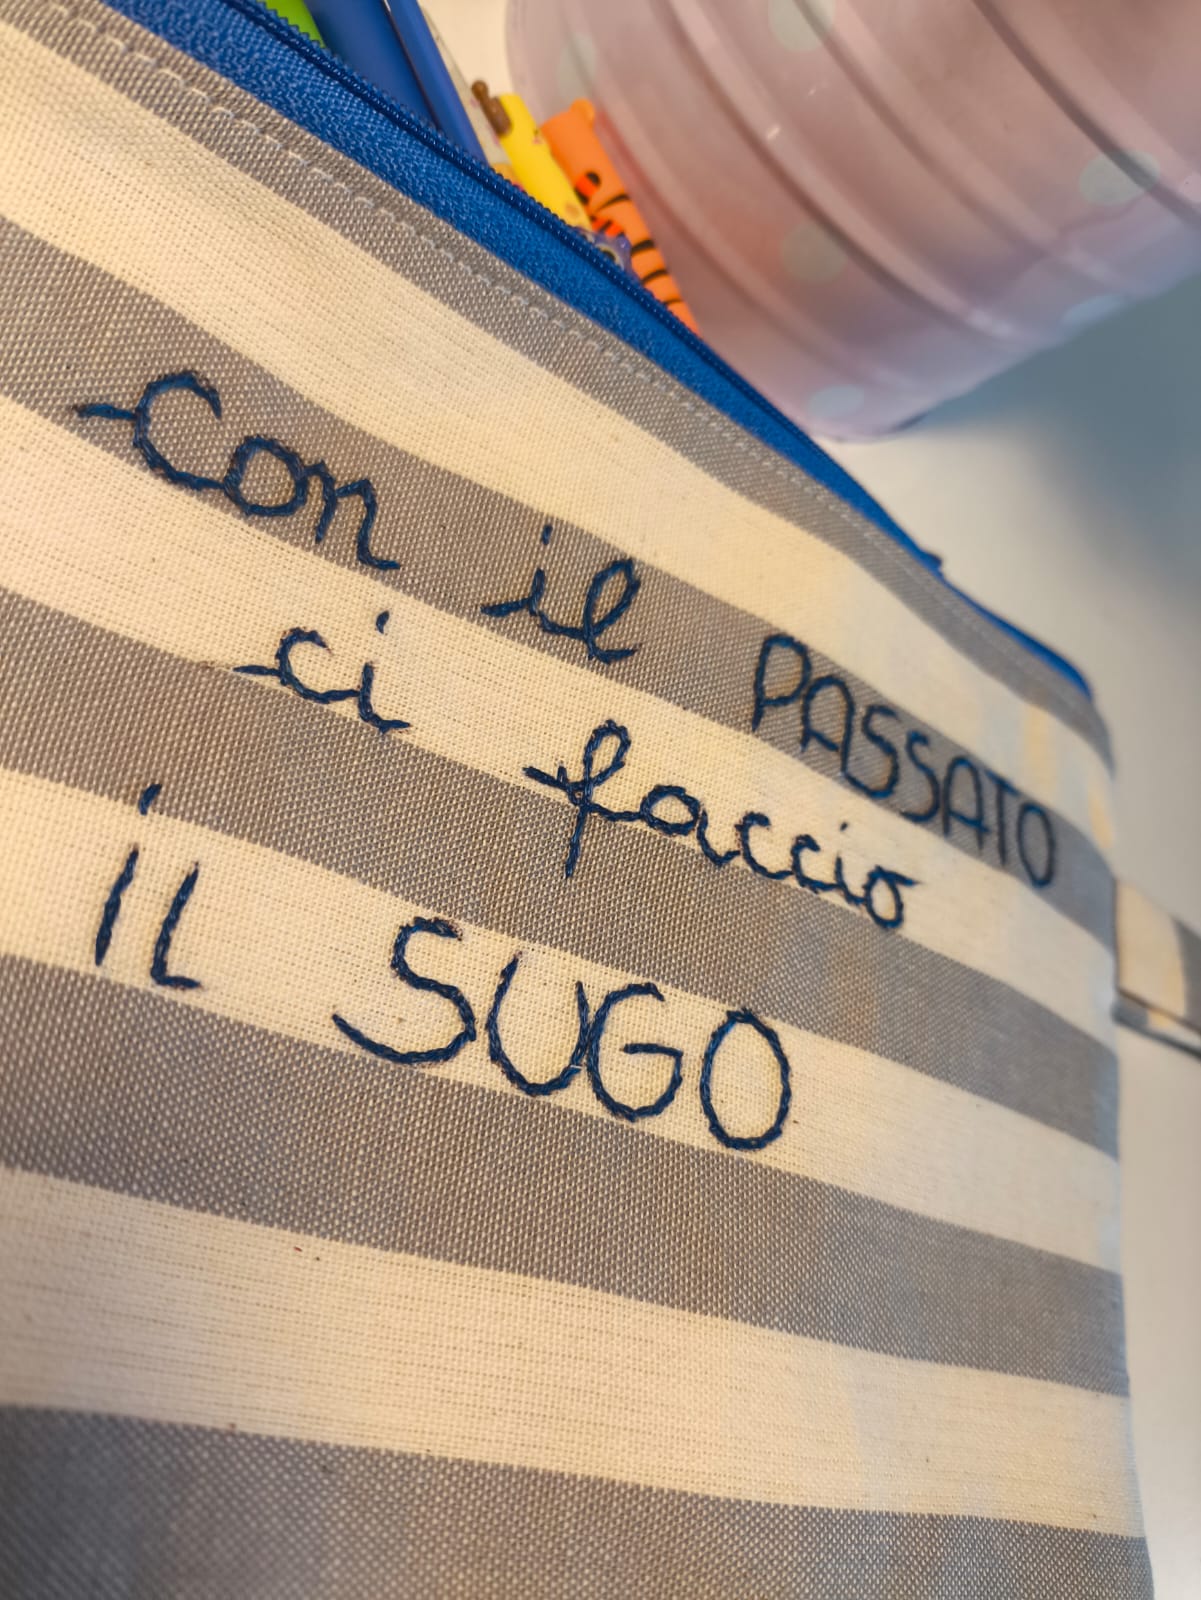 con il PASSATO
ci faccio
iL SUGO